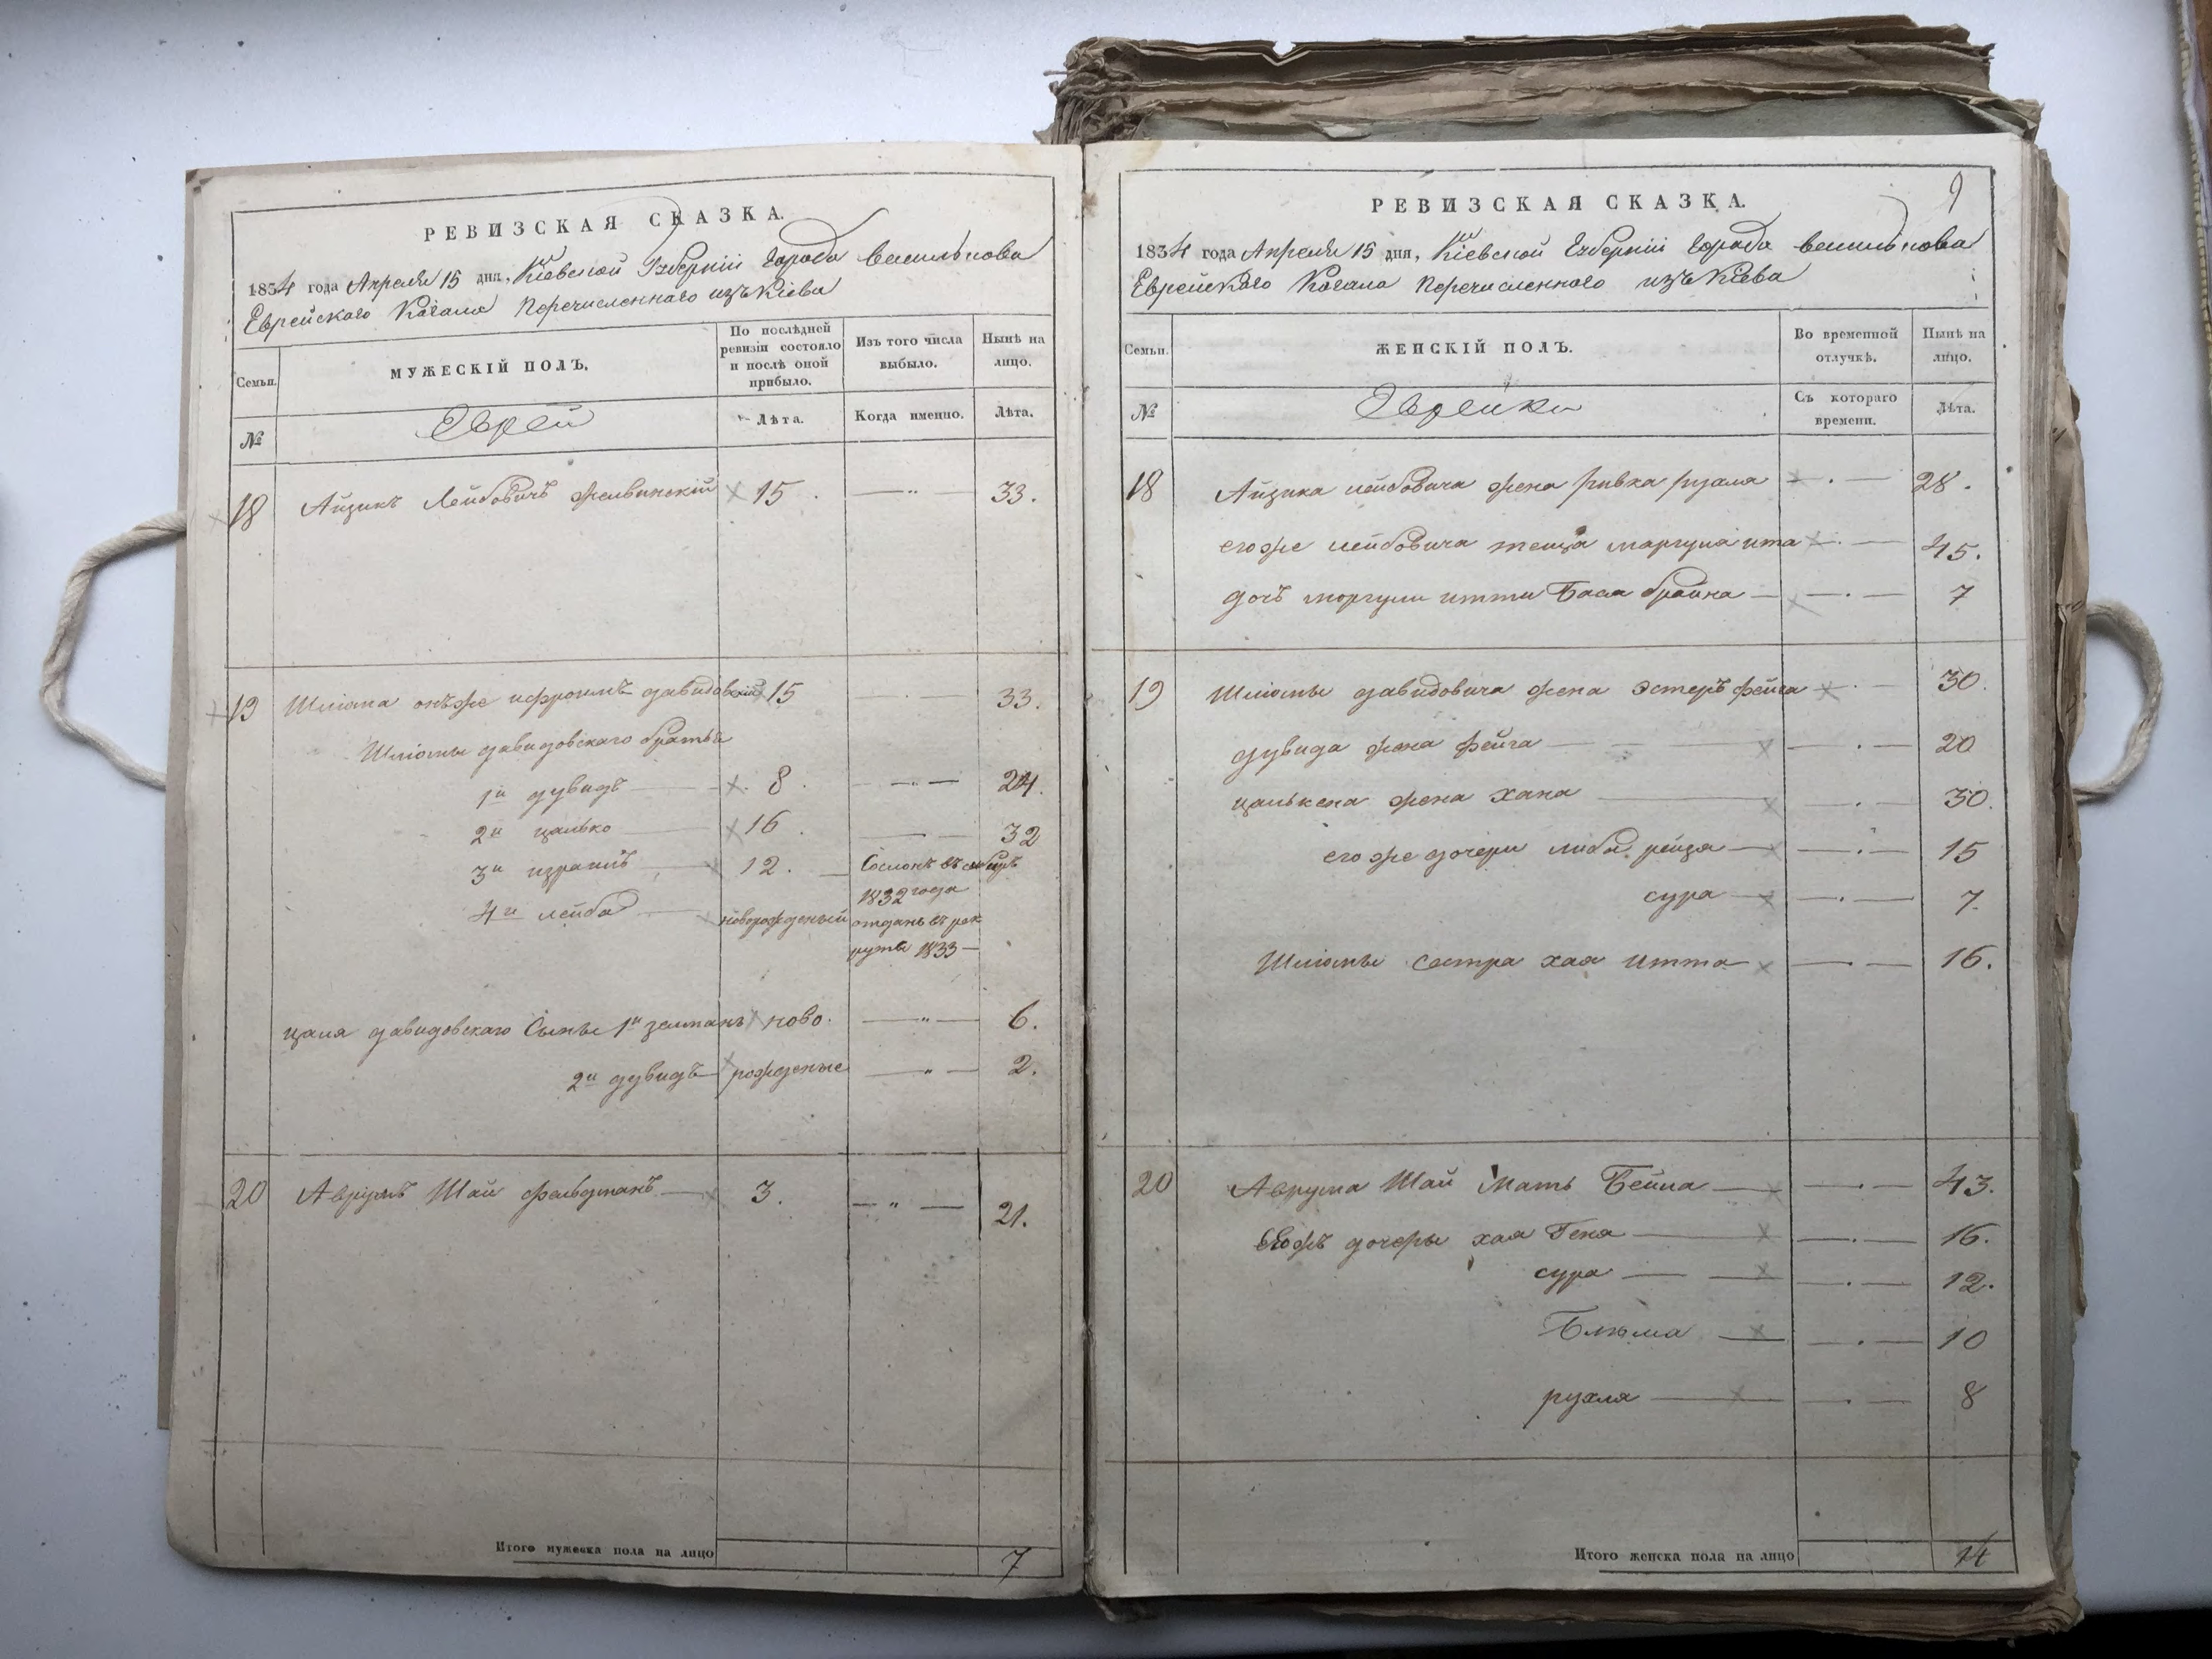 РЕВИЗСКАЯ СКАЗКА.
1834 года Апреля 15 дня, Кіевской Губерніи Города Василькова
Еврейского Кагала Перечисленного изъ Кіева
Семьи.
МУЖЕСКІЙ ПОЛЪ.
По послѣдней ревизіи состояло и послѣ оной прибыло.
Изъ того числа выбыло.
Нынѣ на лицо.
№
Еврей
Лѣта.
Когда именно.
Лѣта.
18 Айзикъ Лейбовичъ 15 . — " — 33.
19 Шліома онъже ифроимъ давидовскій 15 — · — 33.
Шліомы давидовскаго братья
1й дувидъ 8 . — · — 24.
2й цалько 16 . — · — 32
3й израиль 12. Сосланъ въ сибирь
1832 года
4й лейба новорожденый отданъ въ рек
руты 1833 —
цаля давидовскаго Сыны 1й зелманъ ново. — " — 6.
2й дувидъ рожденые — " — 2.
20 Аврумъ Шай фельдманъ 3. — " — 21.
Итого мужеска пола на лицо 7
РЕВИЗСКАЯ СКАЗКА.
9
1834 года Апреля 15 дня, Кіевской Губерніи Города Василькова
Еврейского Кагала Перечисленного изъ Кіева
Семьи.
ЖЕНСКІЙ ПОЛЪ.
Во временной отлучкѣ.
Нынѣ на лицо.
№
Еврейки
Съ котораго времени.
Лѣта.
18 Айзика лейбовича жена ривка рухля — · — 28.
егоже лейбовича теща маргуля ита — · — 45.
дочъ моргули итти Бася брайна — · — 7
19 Шліомы давидовича жена эстеръ фейга — · — 30.
дувида жена фейга — · — 20
цалькена жена хана — · — 30.
егоже дочери либа рейза — · — 15
сура — · — 7.
Шліомы сестра хая итта — · — 16.
20 Аврума Шай мать Бейла — · — 43.
Егожъ дочеры хая Гена — · — 16.
сура — · — 12.
Блюма — · — 10
рухля — · — 8
Итого женска пола на лицо 14